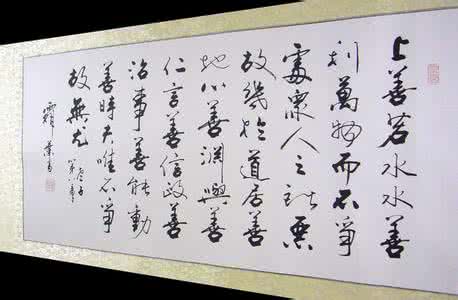 上善若水水善
利萬物而不爭
處衆人之所惡
故幾於道居善
地心善淵與善
仁言善信政善
治事善能動
善時夫唯不爭
故無尤
老子
第八章